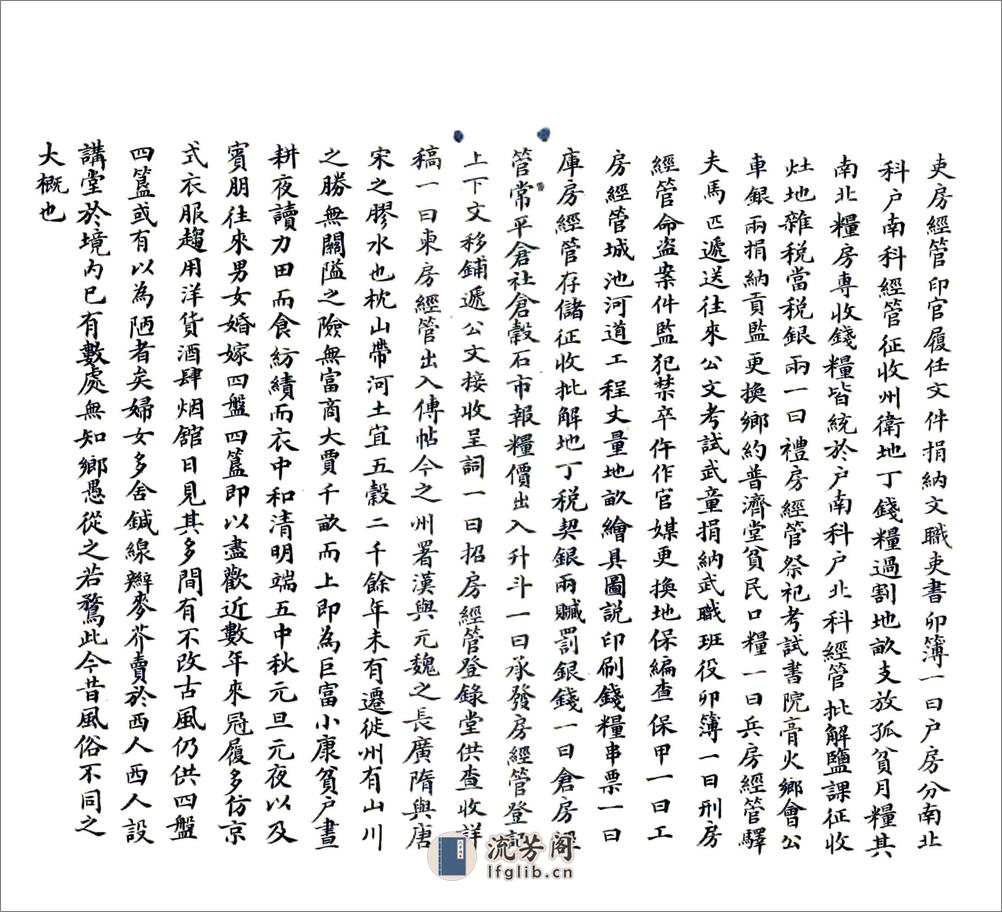 吏房經管印官履任文件捐納文職吏書卯簿一曰户房分南北
科户南科經管征收州衛地丁錢糧過割地畝支放孤貧月糧其
南北糧房專收錢糧皆統於户南科户北科經管批解鹽課征收
灶地雜税當税銀兩一曰禮房經管祭祀考試書院膏火鄉會公
車銀兩捐納貢監更換鄉約普濟堂貧民口糧一曰兵房經管驛
夫馬匹遞送往來公文考試武童捐納武職班役卯簿一曰刑房
經管命盜案件監犯禁卒仵作官媒更換地保編查保甲一曰工
房經管城池河道工程丈量地畝繪具圖説印刷錢糧串票一曰
庫房經管存儲征收批解地丁税契銀兩贓罰銀錢一曰倉房經
管常平倉社倉穀石市報糧價出入升斗一曰承發房經管登記
上下文移鋪遞公文接收呈詞一曰招房經管登錄堂供查收詳
稿一曰東房經管出入傳帖今之州署漢與元魏之長廣隋與唐
宋之膠水也枕山帶河土宜五穀二千餘年未有遷徙州有山川
之勝無關隘之險無富商大賈千畝而上即為巨富小康貧户晝
耕夜讀力田而食紡績而衣中和清明端五中秋元旦元夜以及
賓朋往來男女婚嫁四盤四簋即以盡歡近數年來冠履多仿京
式衣服趨用洋貨酒肆烟館日見其多間有不改古風仍供四盤
四簋或有以為陋者矣婦女多舍鍼線辮麥芥賣於西人西人設
講堂於境內已有數處無知鄉愚從之若鶩此今昔風俗不同之
大概也
流芳阁
lfglib.cn